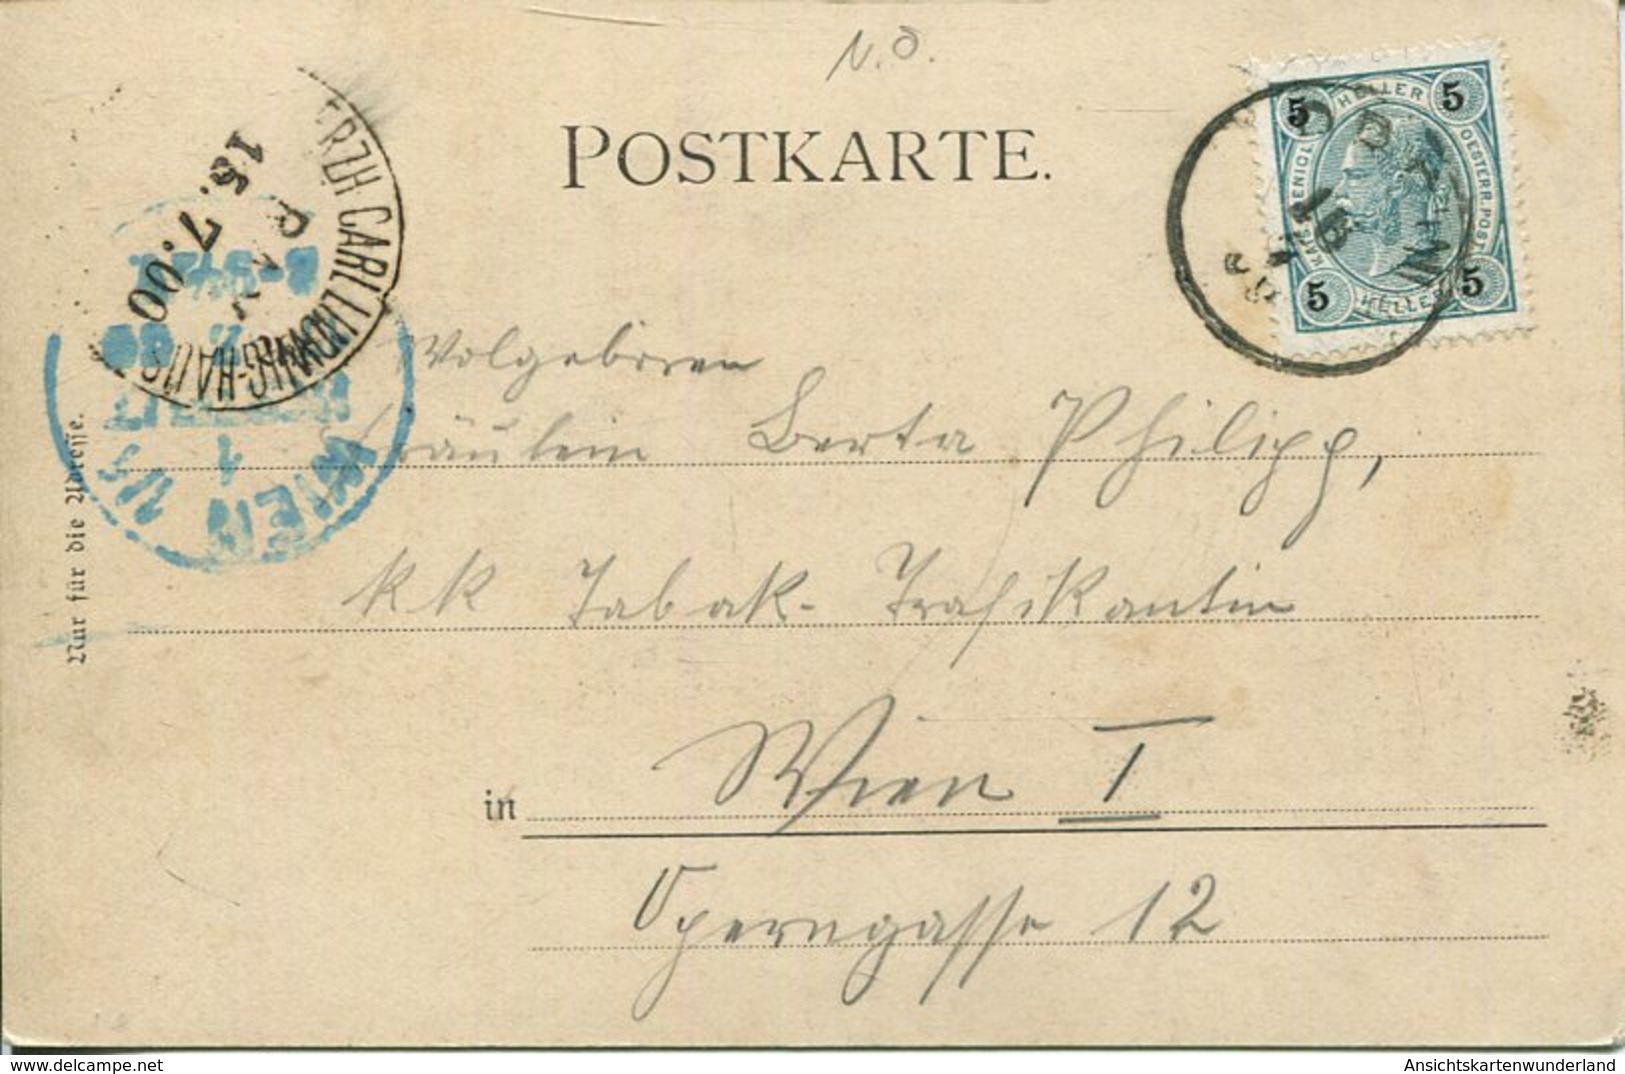 N.Ö.
POSTKARTE.
5 HELLER 5
KAIS. KÖNIGL. OESTERR. POST
5 HELLER 5
15
ERZH CARL LUDWIG-HAUS
RAX
15.7.00
WIEN 1
Wolgeboren
Fräulein Berta Philipp,
KK Tabak-Trafikantin
in Wien I
Operngasse 12
Nur für die Adresse.
delcampe.net
Ansichtskartenwunderland